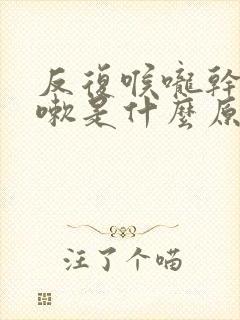 反復喉嚨幹
嗽是什麼原
注了个喵